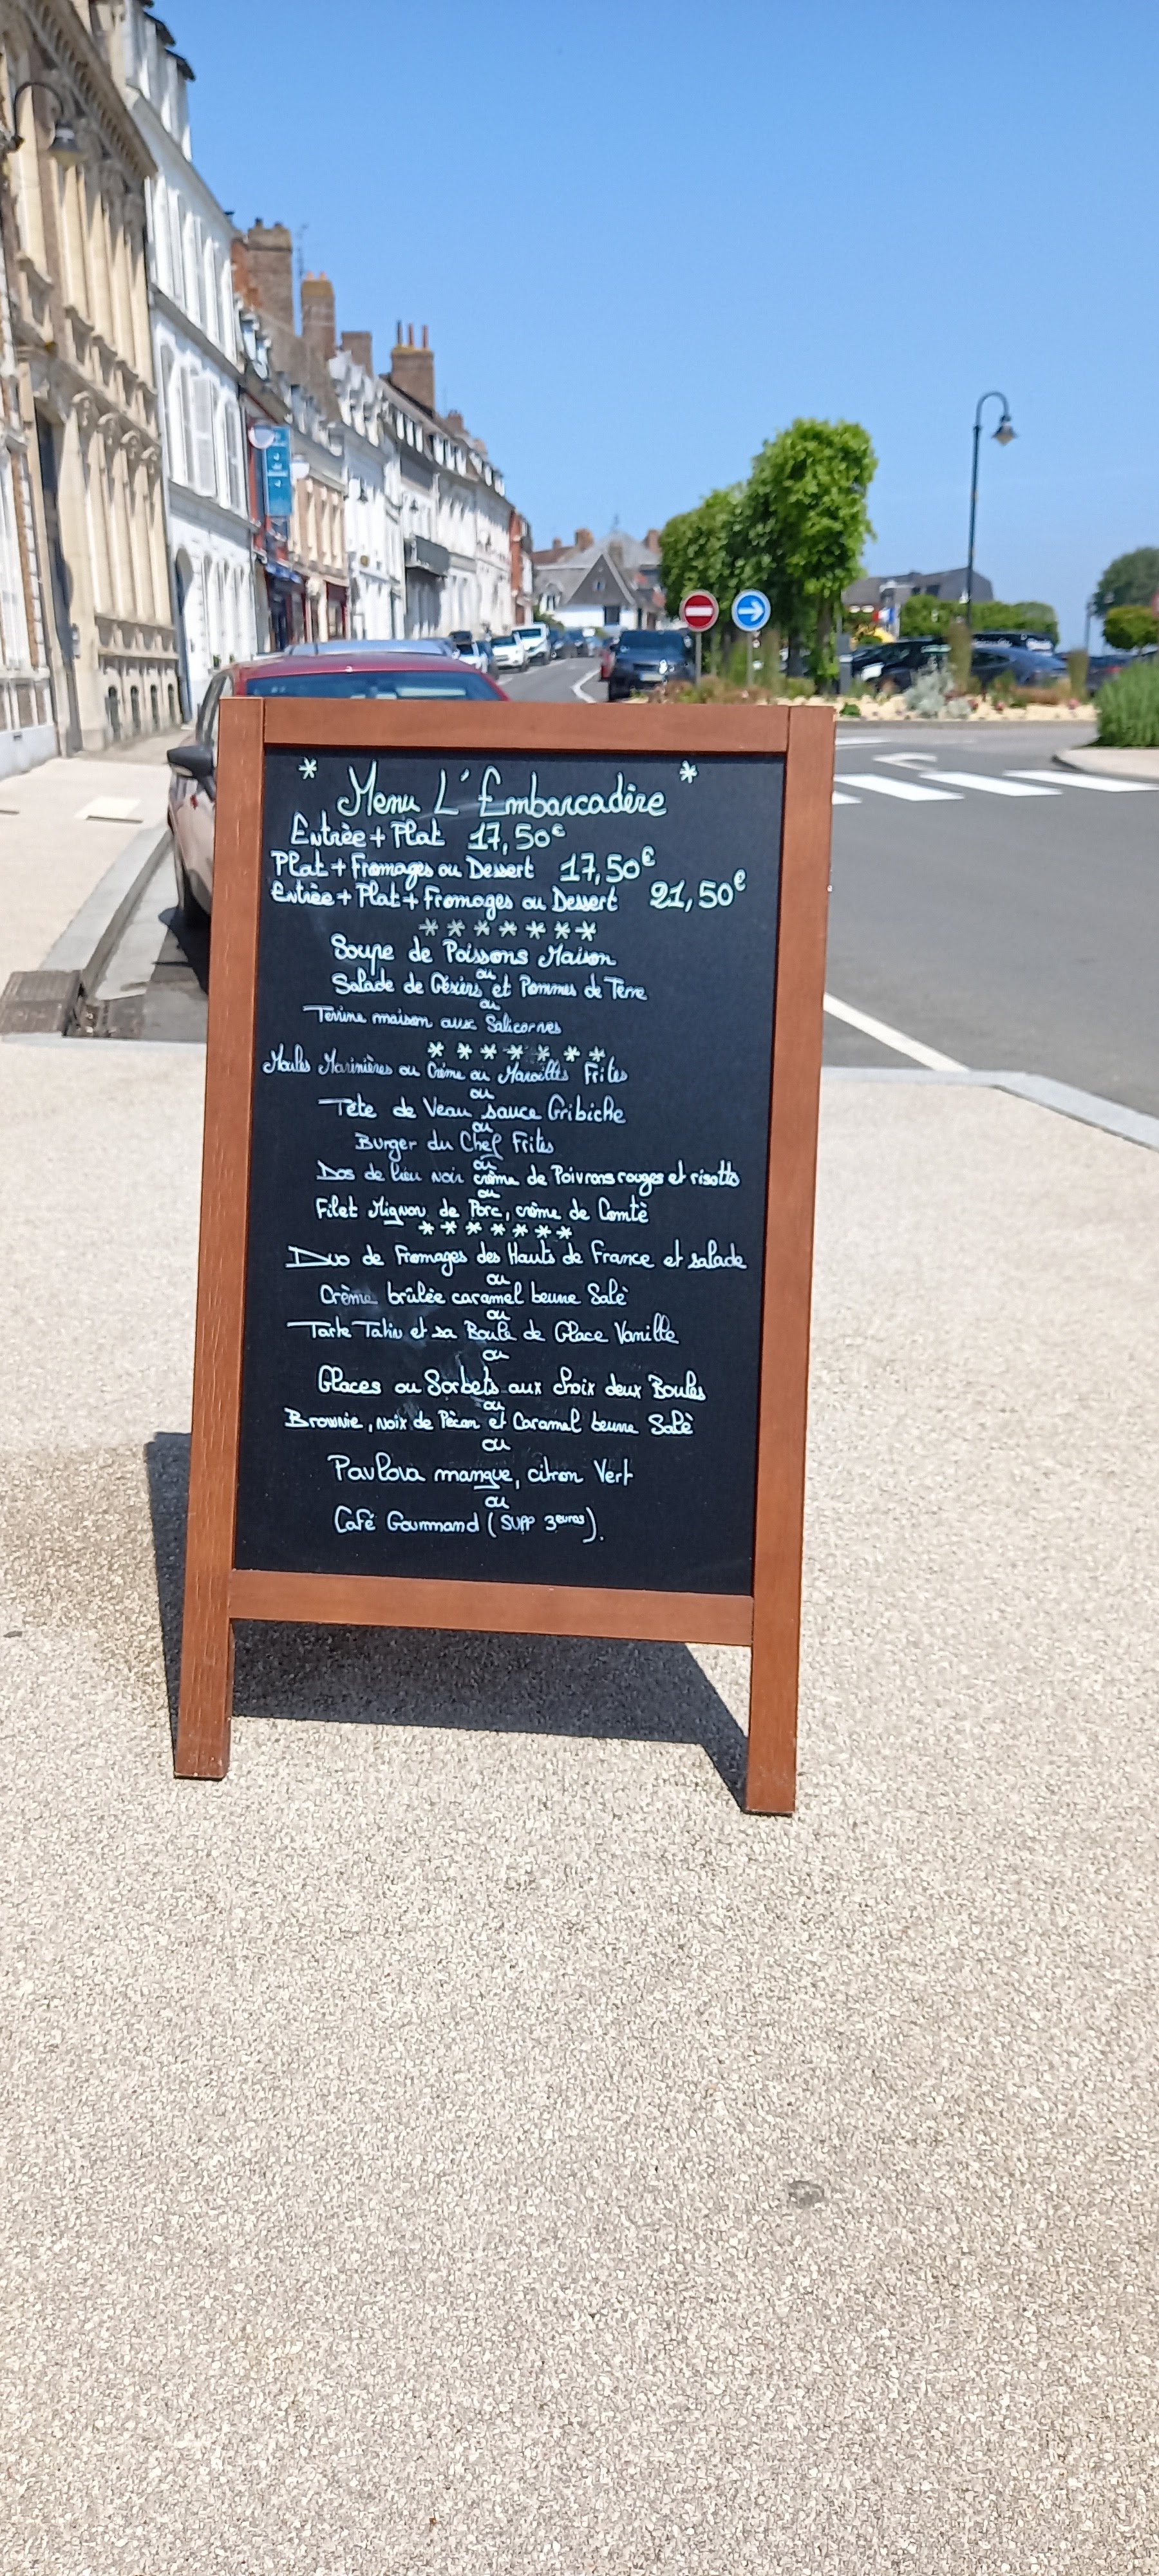 * Menu L'Embarcadère *
Entrée + Plat 17,50€
Plat + Fromages ou Dessert 17,50€
Entrée + Plat + Fromages ou Dessert 21,50€
*******
Soupe de Poissons Maison
ou
Salade de Gésiers et Pommes de Terre
ou
Terrine maison aux Salicornes
*******
Moules Marinières ou Crème ou Maroilles Frites
ou
Tête de Veau sauce Gribiche
ou
Burger du Chef Frites
ou
Dos de lieu noir crème de Poivrons rouges et risotto
ou
Filet Mignon de Porc, crème de Comté
*******
Duo de Fromages des Hauts de France et salade
ou
Crème brûlée caramel beurre Salé
ou
Tarte Tatin et sa Boule de Glace Vanille
ou
Glaces ou Sorbets aux choix deux Boules
ou
Brownie, noix de Pécan et Caramel beurre Salé
ou
Pavlova mangue, citron Vert
ou
Café Gourmand (supp 3euros).